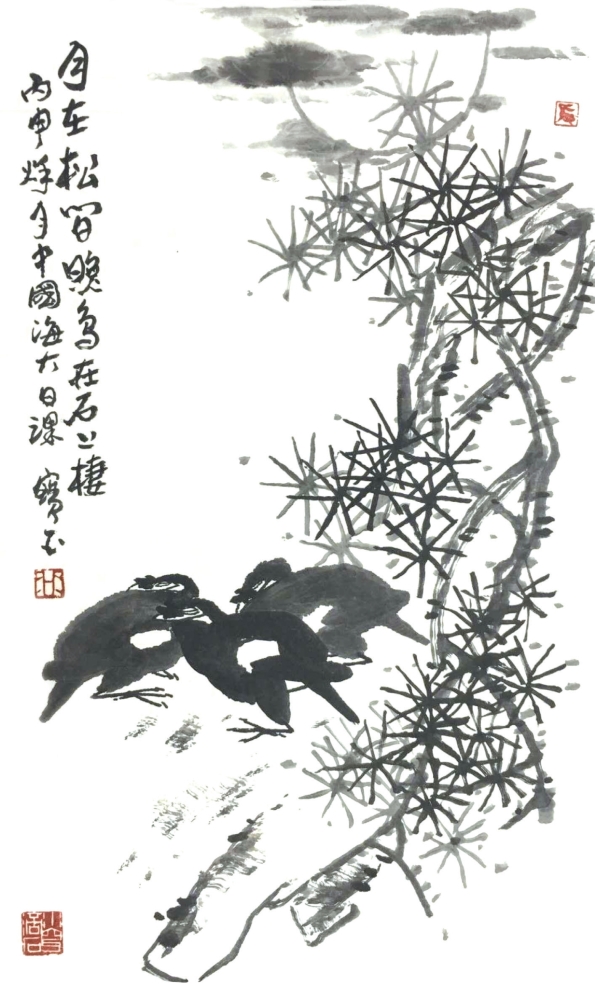 月在松間晚鳥在石上棲
丙申秋月中國海大日課